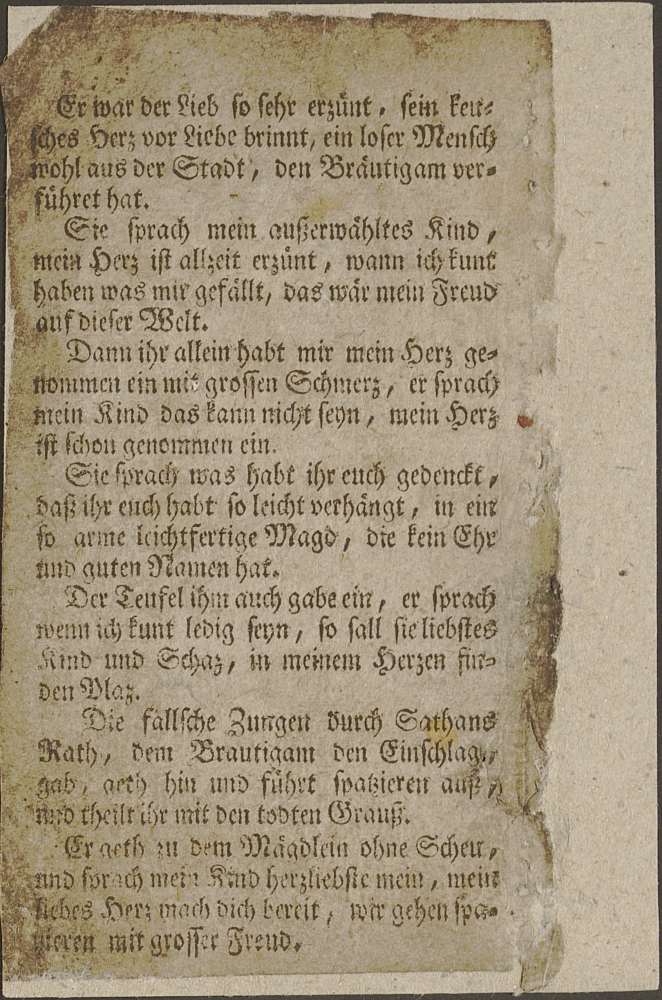 Er war der Lieb so sehr erzünt, sein keu-
sches Herz vor Liebe brinnt, ein loser Mensch
wohl aus der Stadt, den Bräutigam ver-
führet hat.
Sie sprach mein außerwähltes Kind,
mein Herz ist allzeit erzünt, wann ich kunt
haben was mir gefällt, das wär mein Freud
auf dieser Welt.
Dann ihr allein habt mir mein Herz ge-
nommen ein mit grossen Schmerz, er sprach
mein Kind das kann nicht seyn, mein Herz
ist schon genommen ein.
Sie sprach was habt ihr euch gedenckt,
daß ihr euch habt so leicht verhängt, in ein
so arme leichtfertige Magd, die kein Ehr
und guten Namen hat.
Der Teufel ihm auch gabe ein, er sprach
wenn ich kunt ledig seyn, so sall sie liebstes
Kind und Schaz, in meinem Herzen fin-
den Plaz.
Die fällsche Zungen durch Sathans
Rath, dem Brautigam den Einschlag,
gab, geth hin und führt spatzieren auß,
und theilt ihr mit den todten Grauß.
Er geth zu dem Mägdlein ohne Scheu,
und sprach mein Kind herzliebste mein, mein
liebes Herz mach dich bereit, wir gehen spa-
zieren mit grosser Freud.